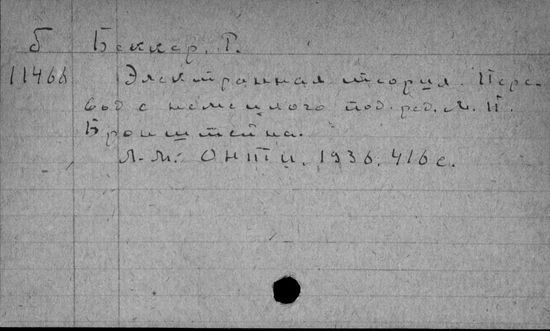 Б Беккер, Р.
11466 Электронная теория. Пере-
вод с немецкого под ред. М. П.
Бронштейна.
Л.-М.: ОНТИ, 1936. 416 с.